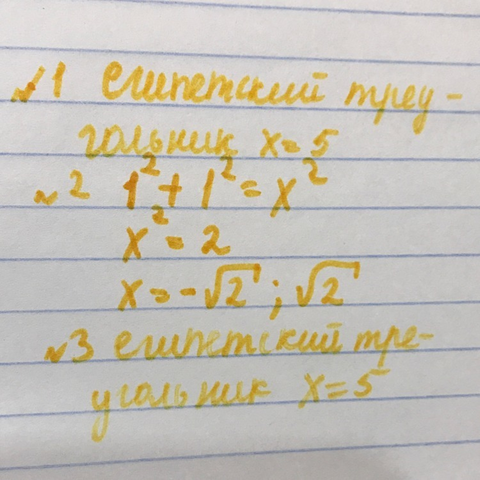 №1 египетский треу-
гольник x=5
№2 1²+1²=x²
x²=2
x=-√2; √2
№3 египетский тре-
угольник x=5